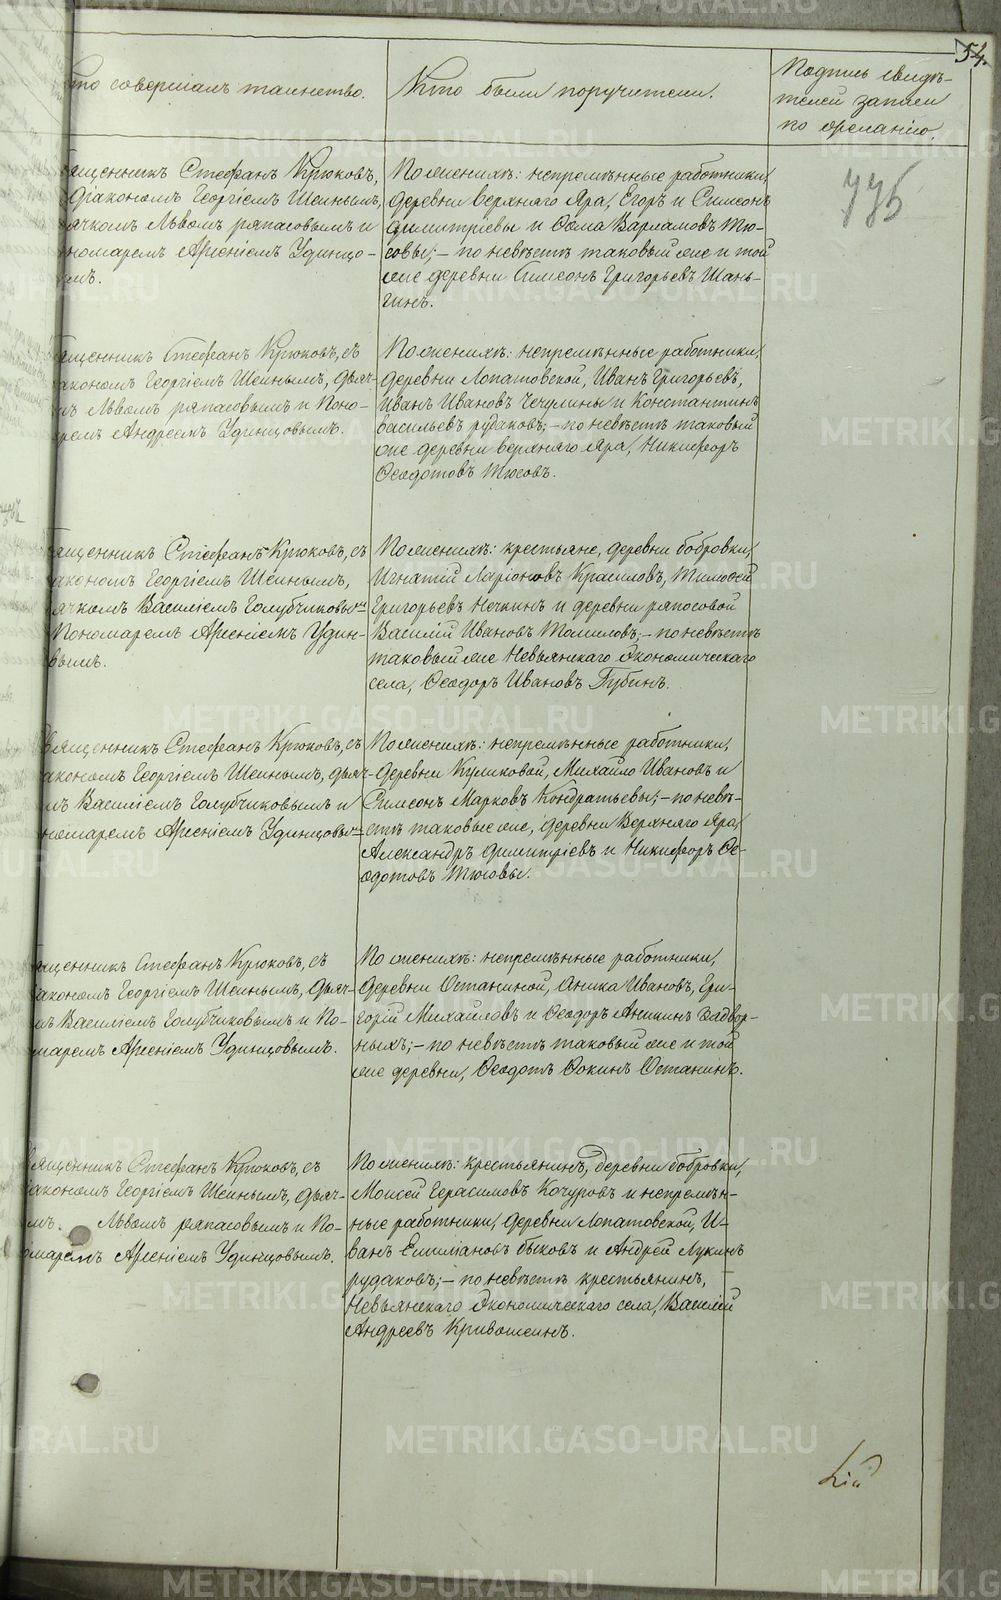 54.
то совершалъ таинство.
Кто были поручители.
Подпись свидѣ-
телей записи
по желанію.
735
ященникъ Стефанъ Крюковъ,
Діакономъ Георгіемъ Шеинымъ,
ячкомъ Львомъ ряпасовымъ и
номаремъ Арсеніемъ Удинцо-
мъ.
По женихѣ: непремѣнные работники,
деревни верхняго Яра, Егоръ и Симеонъ
Димитріевы и Ѳома Варламовъ Тю-
совы; – по невѣстѣ таковый же и той
же деревни Симеонъ Григорьевъ Шань-
гинъ.
ященникъ Стефанъ Крюковъ, съ
акономъ Георгіемъ Шеинымъ, дьяч-
мъ Львомъ ряпасовымъ и Поно-
ремъ Андреемъ Удинцовымъ.
По женихѣ: непремѣнные работники,
деревни Лопатовской, Иванъ Григорьевъ,
Иванъ Ивановъ Чечулины и Константинъ
васильевъ рудаковъ; – по невѣстѣ таковый
же деревни верхняго Яра, Никифоръ
Ѳеодотовъ Тюсовъ.
ященникъ Стефанъ Крюковъ, съ
акономъ Георгіемъ Шеинымъ,
ячкомъ Василіемъ Голубчиковымъ
Пономаремъ Арсеніемъ Удин-
вымъ.
По женихѣ: крестьяне, деревни бобровки,
Игнатій Ларіоновъ Красиловъ, Тимоѳей
Григорьевъ Нечкинъ и деревни ряпосовой
Василій Ивановъ Томиловъ; – по невѣстѣ
таковый же Невьянскаго Экономическаго
села, Ѳеодоръ Ивановъ Губинъ.
Священникъ Стефанъ Крюковъ, съ
акономъ Георгіемъ Шеинымъ, дьяч-
мъ Василіемъ Голубчиковымъ и
номаремъ Арсеніемъ Удинцовы=
По женихѣ: непремѣнные работники,
деревни Куликовой, Михайло Ивановъ и
Симеонъ Марковъ Кондратьевы; – по невѣ-
стѣ таковые же, деревни Верхняго Яра,
Александръ Димитріевъ и Никифоръ Ѳе-
одотовъ Тюсовы.
ященникъ Стефанъ Крюковъ, съ
іакономъ Георгіемъ Шеинымъ, Дьяч-
мъ Василіемъ Голубчиковымъ и По-
маремъ Арсеніемъ Удинцовымъ.
По женихѣ: непремѣнные работники,
деревни Останиной, Аника Ивановъ, Гри-
горій Михайловъ и Ѳеодоръ Аникинъ Задвор-
ныхъ; – по невѣстѣ таковый же и той
же деревни, Ѳеодотъ Ѳокинъ Останинъ.
Священникъ Стефанъ Крюковъ, съ
іакономъ Георгіемъ Шеинымъ, дьяч-
мъ. Львомъ ряпасовымъ и По-
омаремъ Арсеніемъ Удинцовымъ.
По женихѣ: крестьянинъ, деревни бобровки,
Моисей Герасимовъ Кочуровъ и непремѣн-
ные работники, деревни Лопатовской, И-
ванъ Емиліановъ быковъ и Андрей Лукинъ
рудаковъ; – по невѣстѣ крестьянинъ,
Невьянскаго Экономическаго села, Василій
Андреевъ Кривошеинъ.
METRIKI.GASO-URAL.RU